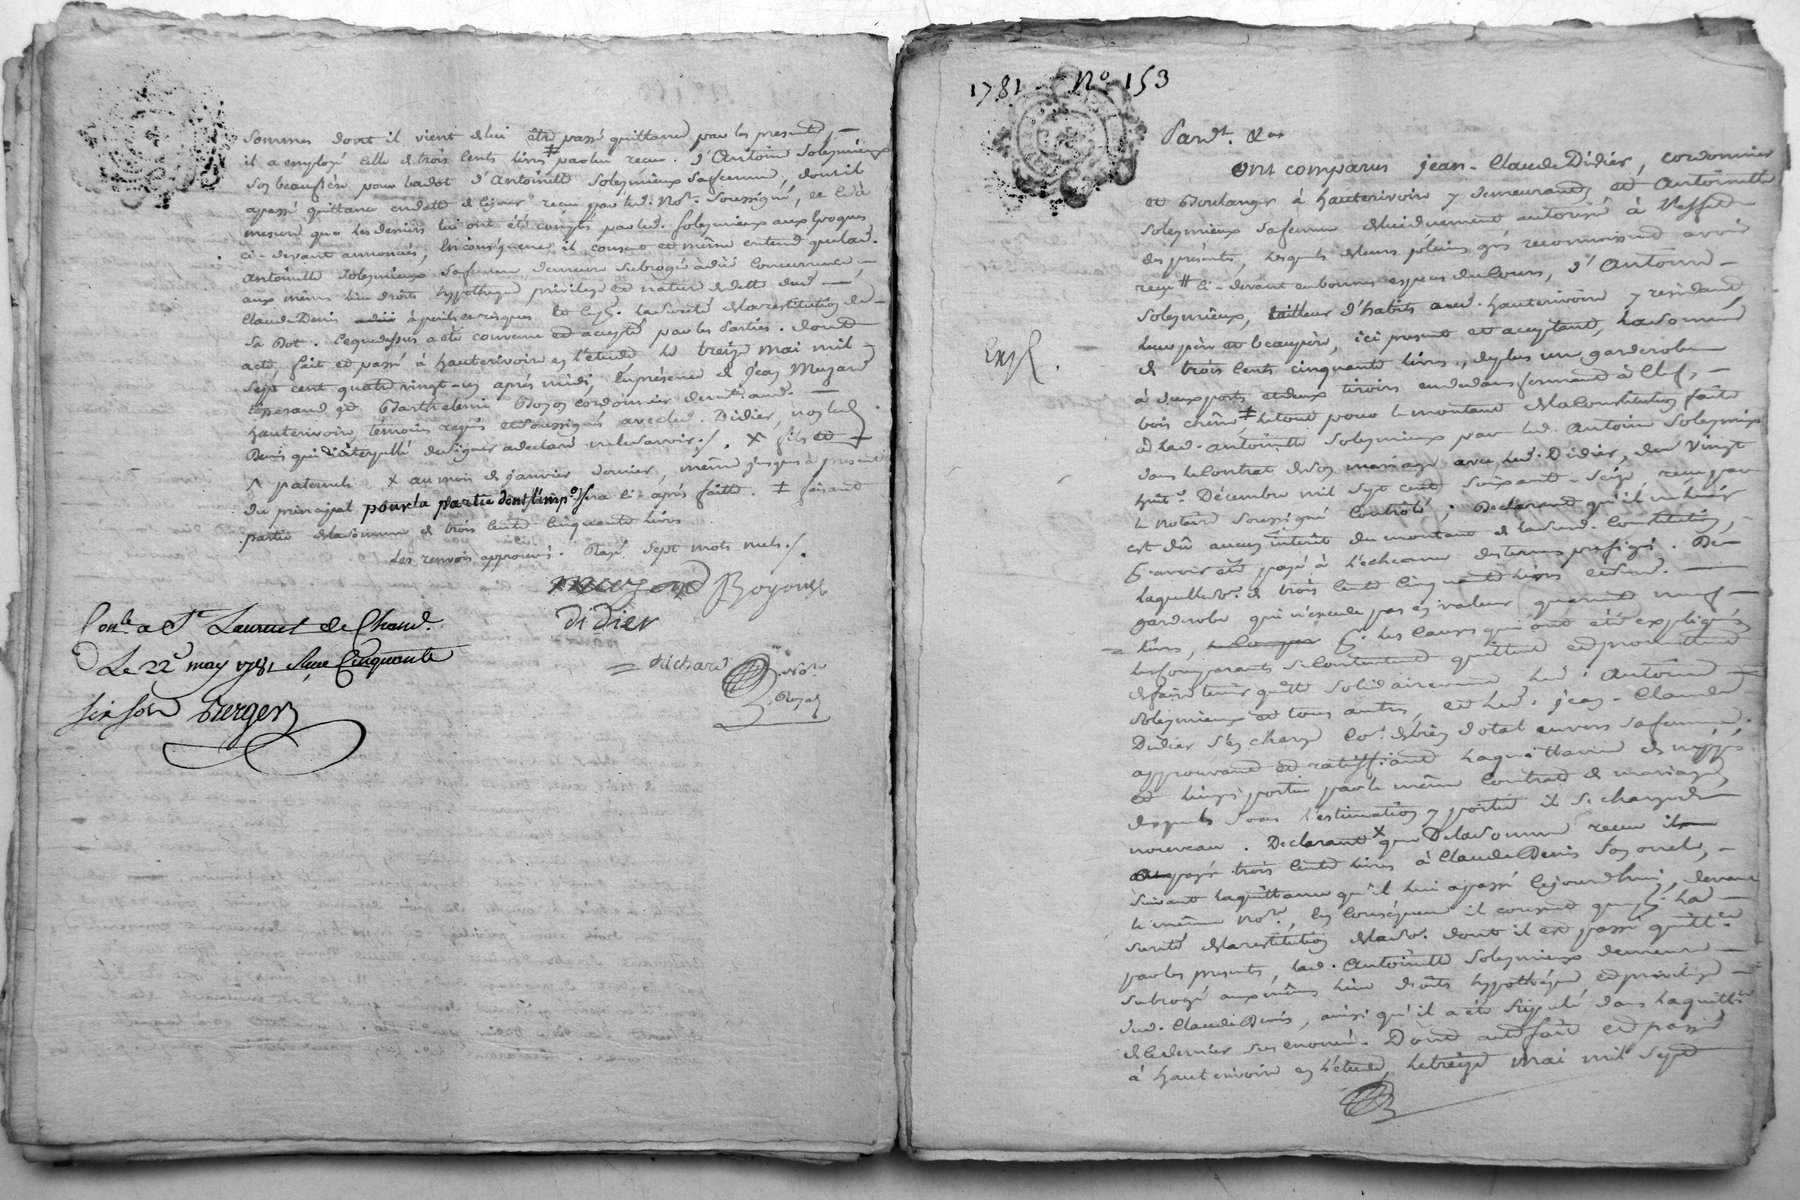 sommes dont il vient de lui être passé quittance par les presentes,
il a employé celle de trois cents livres ‡ par lui reçue d'Antoine Soleymieux
son beaupère, pour la dot d'Antoinette Soleymieux sa femme, dont il
a passé quittance en datte de ce jour reçue par led. Nore. soussigné, et à
mesure que les deniers lui ont été comptés par led. Soleymieux aux époques
ci-devant annoncés, En conséquence il consent et même entend que lad.
Antoinette Soleymieux sa femme demeure subrogée à dûe concurrence
aux mêmes lieu droits hypotheque privilege et nature de dette dud.
Claude Denis à perils et risques la sureté de la restitution de
sa Dot. Ce que dessus a été convenu et accepté par les Parties. Dont
acte, fait et passé à hauterivoire en l'étude le treize mai mil
sept cent quatre vingt-un après midi, En présence de jean Muzard
tisserand et Barthelemi Boyon cordonnier demeurant
hauterivoire, témoins requis et soussignés avec led. Didier, non led.
Denis qui interpellé de signer a déclaré ne le savoir ./. X fils et
^ paternels X au mois de janvier dernier, même jusques à present
du principal pour la partie dont l'imp.on sera ci-après faitte. ‡ faisant
partie de la somme de trois cents cinquante livres
Les renvois approuvés. Rayé sept mots nuls ./.
Muzard Boyon
didier
Conle a St. Laurent de Chamt.
Le 22e may 1781 Reçu Cinquante
= Richard Nore.
Royal
six sols Berger
1781 - No. 153
Pardt. &a
Ont comparus jean-Claude Didier, cordonnier
et Boulanger à hauterivoire y demeurant, et Antoinette
Soleymieux sa femme de lui duement autorisée à l'effet
des présentes, Lesquels de leurs pleins grés reconnoissent avoir
reçu # ci-devant en bonnes especes du Cours, d'Antoine
Soleymieux, tailleur d'habits aud. hauterivoire y residant
leur père et beaupère, ici present et acceptant, la somme
Exp.
de trois cents cinquante livres, de plus une garderobe
à deux portes et deux tiroirs en dedans fermant à Clef,
bois chêne ‡ le tout pour le montant de la Constitution faite
à lad. Antoinette Soleymieux par led. Antoine Soleymieux
dans le Contrat de son mariage avec led. Didier, du vingt
huit. Décembre mil sept cent soixante-seize, reçu par
le notaire soussigné Controlé; Declarant qu'il ne leur
est dû aucun interêt du montant de lad. Constitution,
p. avoir été payé à l'echeance des termes prefigés. De
laquelle so. de trois cents cinquante livres et de lad.
garderobe qui n'excede pas en valeur quarante neuf
= livres, p. les causes qui ont été expliquées
les Comparants se contentent quittent et promettent
de faire tenir quitte solidairement led. Antoine
Soleymieux et tous autres, et led. jean-Claude
Didier s'en charge en bien d'etat envers sa femme.
approuvant et ratiffiant la quittance de nippes
et linges portée par le même Contrat de mariage,
desquels sous l'estimation y portée il se charge de
nouveau. Declarant X que De la somme reçue il
a payé trois cents livres à Claude Denis
suivant la quittance qu'il lui a passé cejourd'hui, devant
le même Nore., En conséquence il consent que p. la
sureté de la restitution de lad. so. dont il est passé quittce.
par les presentes, lad. Antoinette Soleymieux demeure
subrogée aux mêmes lieu droits hypotheque et privilege
dud. Claude Denis, ainsi qu'il a été stipulé dans la quittce.
de ce dernier sus enoncée. Dont acte fait et passé
à hauterivoire en l'étude, le treize mai mil sept